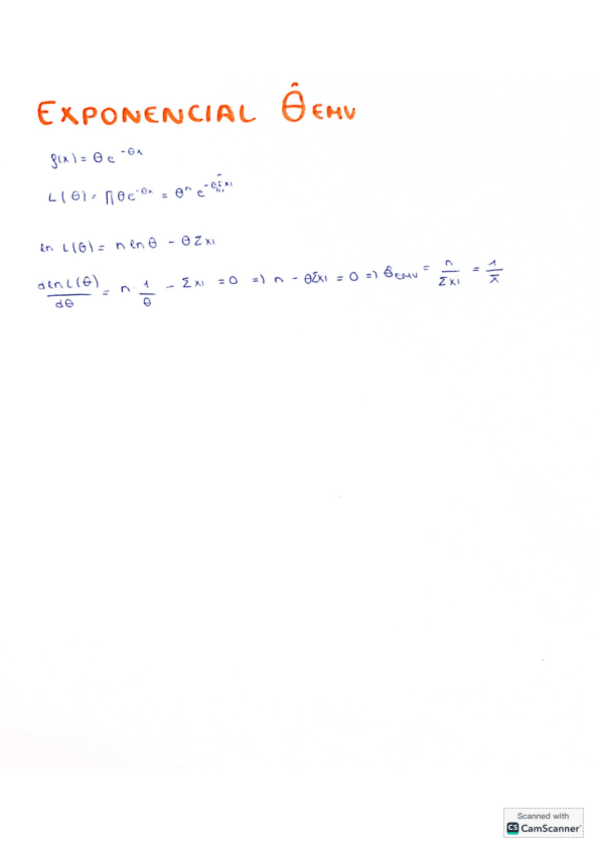 EXPONENCIAL θ̂ EMV
f(x) = θ e^{-θx}
L(θ) = ∏ θe^{-θx} = θ^n e^{-θ Σ xi}
ln L(θ) = n ln θ - θ Σ xi
d ln L(θ) / dθ = n · 1/θ - Σ xi = 0 => n - θΣxi = 0 => θ̂ EMV = n / Σ xi = 1 / x̄
Scanned with
CS CamScanner